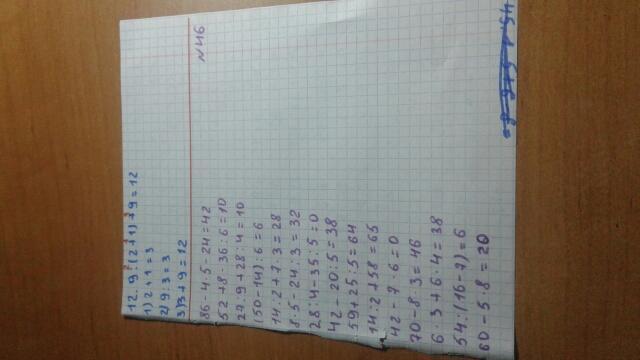 12. 9:(2+1)+9=12
1) 2+1=3
2) 9:3=3
3) 3+9=12
N116
86-4·5-24=42
52+8-36:6=10
27:9+28:4=10
(50-14):6=6
14·2+7·3=28
8·5-24:3=32
28:4-35:5=0
42-20:5=38
59+25:5=64
14:2+58=65
42-7·6=0
70-8·3=46
6·3+6·4=38
54:(16-7)=6
60-5·8=20